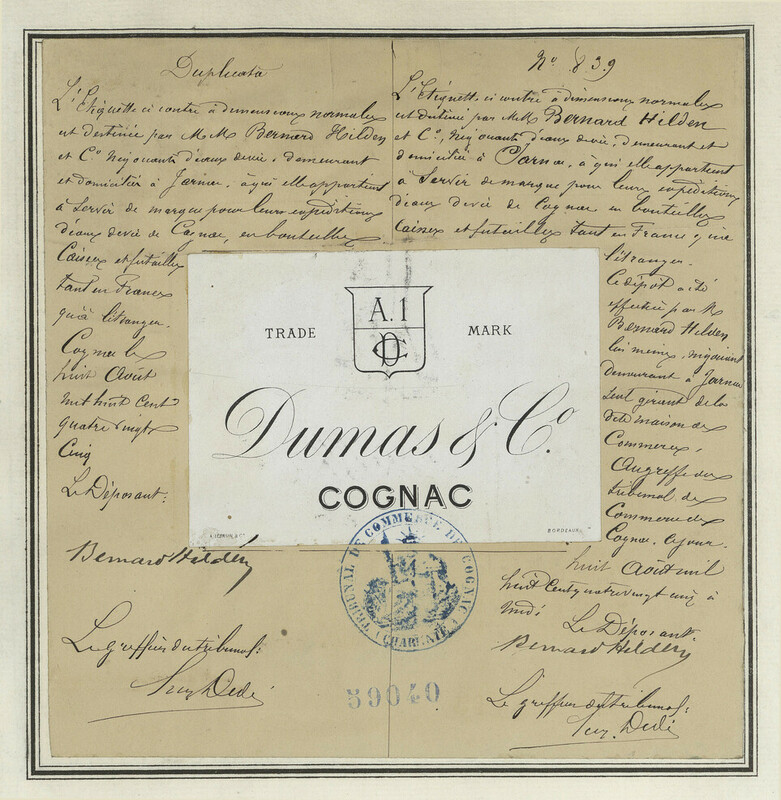 Duplicata
L'Etiquette ci contre à dimensions normales
est destinée par M. M. Bernard Hilden
et Co, Négociants d'eaux de vie, demeurant
et domiciliés à Jarnac, à qui elle appartient
à servir de marque pour leurs expéditions
d'eaux de vie de Cognac, en bouteilles
Caisses et futailles
tant en France
qu'à l'étranger.
Cognac le
huit Août
mil huit Cent
quatre vingt
Cinq
Le Déposant:
Bernard Hilden
Le greffier du tribunal:
Dédé
No 839
L'Etiquette ci contre à dimensions normales
est destinée par MM Bernard Hilden
et Co, Négociants d'eaux de vie, demeurant et
domiciliés à Jarnac, à qui elle appartient
à servir de marque pour leurs expéditions
d'eaux de vie de Cognac en bouteilles
Caisses et futailles tant en France qu'à
l'étranger.
Ce dépôt a été
effectué par M
Bernard Hilden
lui même, négociant
demeurant à Jarnac
seul gérant de la
dite maison de
Commerce,
Au greffe du
tribunal de
Commerce de
Cognac, ce jour
huit Août mil
huit Cent quatre vingt cinq à
midi
Le Déposant:
Bernard Hilden
Le greffier du tribunal:
Dédé
A.1
TRADE MARK
Dumas & Co.
COGNAC
BORDEAUX
TRIBUNAL DE COMMERCE DE COGNAC
(CHARENTE)
59040